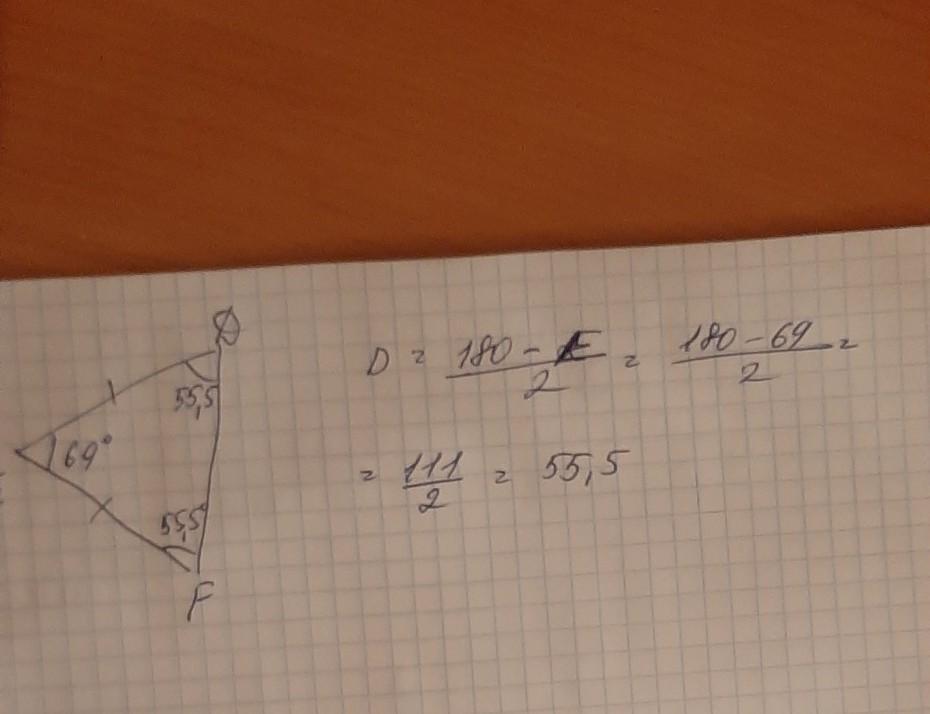 D
55,5
69°
55,5
F
D = 180 - E / 2 = 180 - 69 / 2 =
= 111 / 2 = 55,5